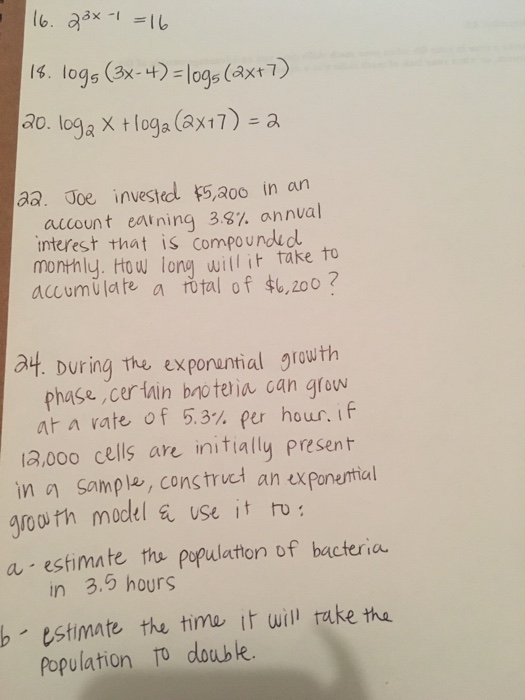 16. 2^3x-1 = 16
18. log5 (3x-4) = log5 (2x+7)
20. log2 x + log2 (2x+7) = 2
22. Joe invested $5,200 in an
account earning 3.8% annual
interest that is compounded
monthly. How long will it take to
accumulate a total of $6,200?
24. During the exponential growth
phase, certain bacteria can grow
at a rate of 5.3% per hour. if
12,000 cells are initially present
in a sample, construct an exponential
growth model & use it to:
a - estimate the population of bacteria
in 3.5 hours
b - estimate the time it will take the
population to double.